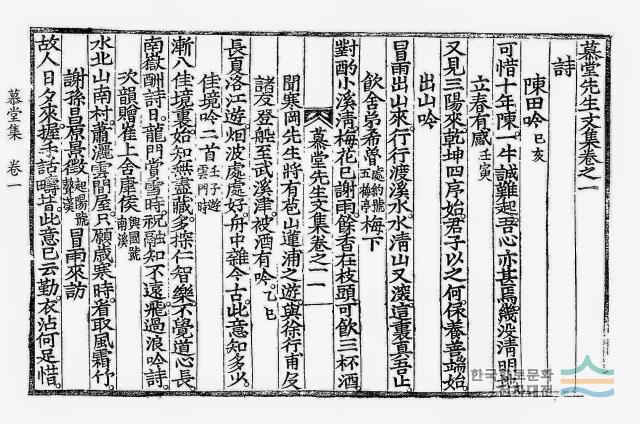 慕堂先生文集卷之一
詩
陳田吟 己亥
可惜十年陳一牛誠難起吾心亦甚焉幾沒清明地
立春有感 壬寅
又見三陽來乾坤四序始君子以之何保養善端始
出山吟
冒雨出山來行行渡溪水水淸山又深這裏眞吾止
飮舍弟希魯 處約號五梅亭 梅下
對酌小溪淸梅花已謝雨餘香在枝頭可飮三杯酒
慕堂先生文集卷之一 一
聞寒岡先生將有芚山蓮浦之遊與徐行甫及
諸友登船至武溪津被酒有吟 乙巳
長夏洛江遊烟波處處好舟中雜今古此意知多少
佳境吟二首 壬子遊雲門時
漸入佳境裏始知無盡藏多探仁智樂不覺道心長
南嶽酬詩日龍門賞雪時祝融知不遠飛過浪吟詩
次韻贈崔上舍康侯 興國號南溪
水北山南村蕭灑雲間屋只願歲寒時看取風霜竹
謝孫昌原景徵 起陽號鰲漢 冒雨來訪
故人日夕來握手話疇昔此意已云勤衣沾何足惜
慕堂集 卷一
한국향토문화
전자대전